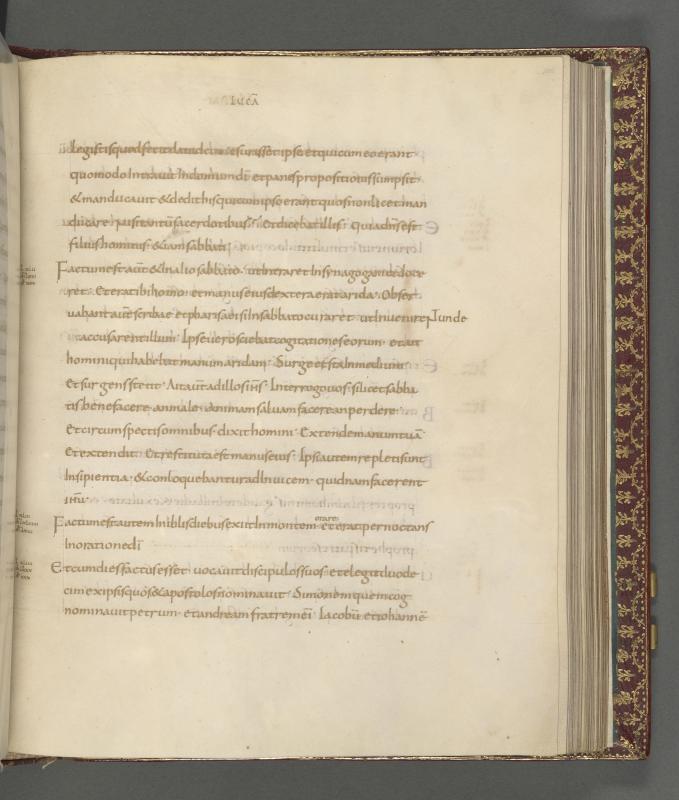 LUCĀ
Legistis quod fecit dauid cum esurisset ipse et qui cum eo erant
quomodo intrauit in domum dī et panes propositionis sumpsit
& manducauit & dedit his qui cum ipso erant quos non licet man
ducare nisi tantū sacerdotibus · Et dicebat illis · Quia dn̄s est
filius hominis · &iam sabbati
Factum est aut̄ & in alio sabbato · ut intraret in synagogam & doce
ret · Et erat ibi homo · et manus eius dextera erat arida · Obser
uabant autē scribae et pharisaei si in sabbato curaret · ut inuenirent unde
accusarent illum · Ipse uero sciebat cogitationes eorum · et ait
homini qui habebat manum aridam · Surge et sta in medium ·
Et surgens stetit · Ait aut̄ ad illos ih̄s · Interrogo uos · si licet sabba
tis bene facere · an male · Animam saluam facere an perdere ·
Et circumspectis omnibus · dixit homini · Extende manum tuā
Et extendit · Et restituta est manus eius · Ipsi autem repleti sunt
insipientia · & conloquebantur ad inuicem · quidnam facerent
ih̄u ·
Factum est autem in illis diebus exiit in montem orare et erat pernoctans
in oratione dī
Et cum dies factus esset · uocauit discipulos suos · et elegit duode
cim ex ipsis quos & apostolos nominauit · Simonem quem cog
nominauit petrum · et andream fratrem ei · Iacobū et iohannē